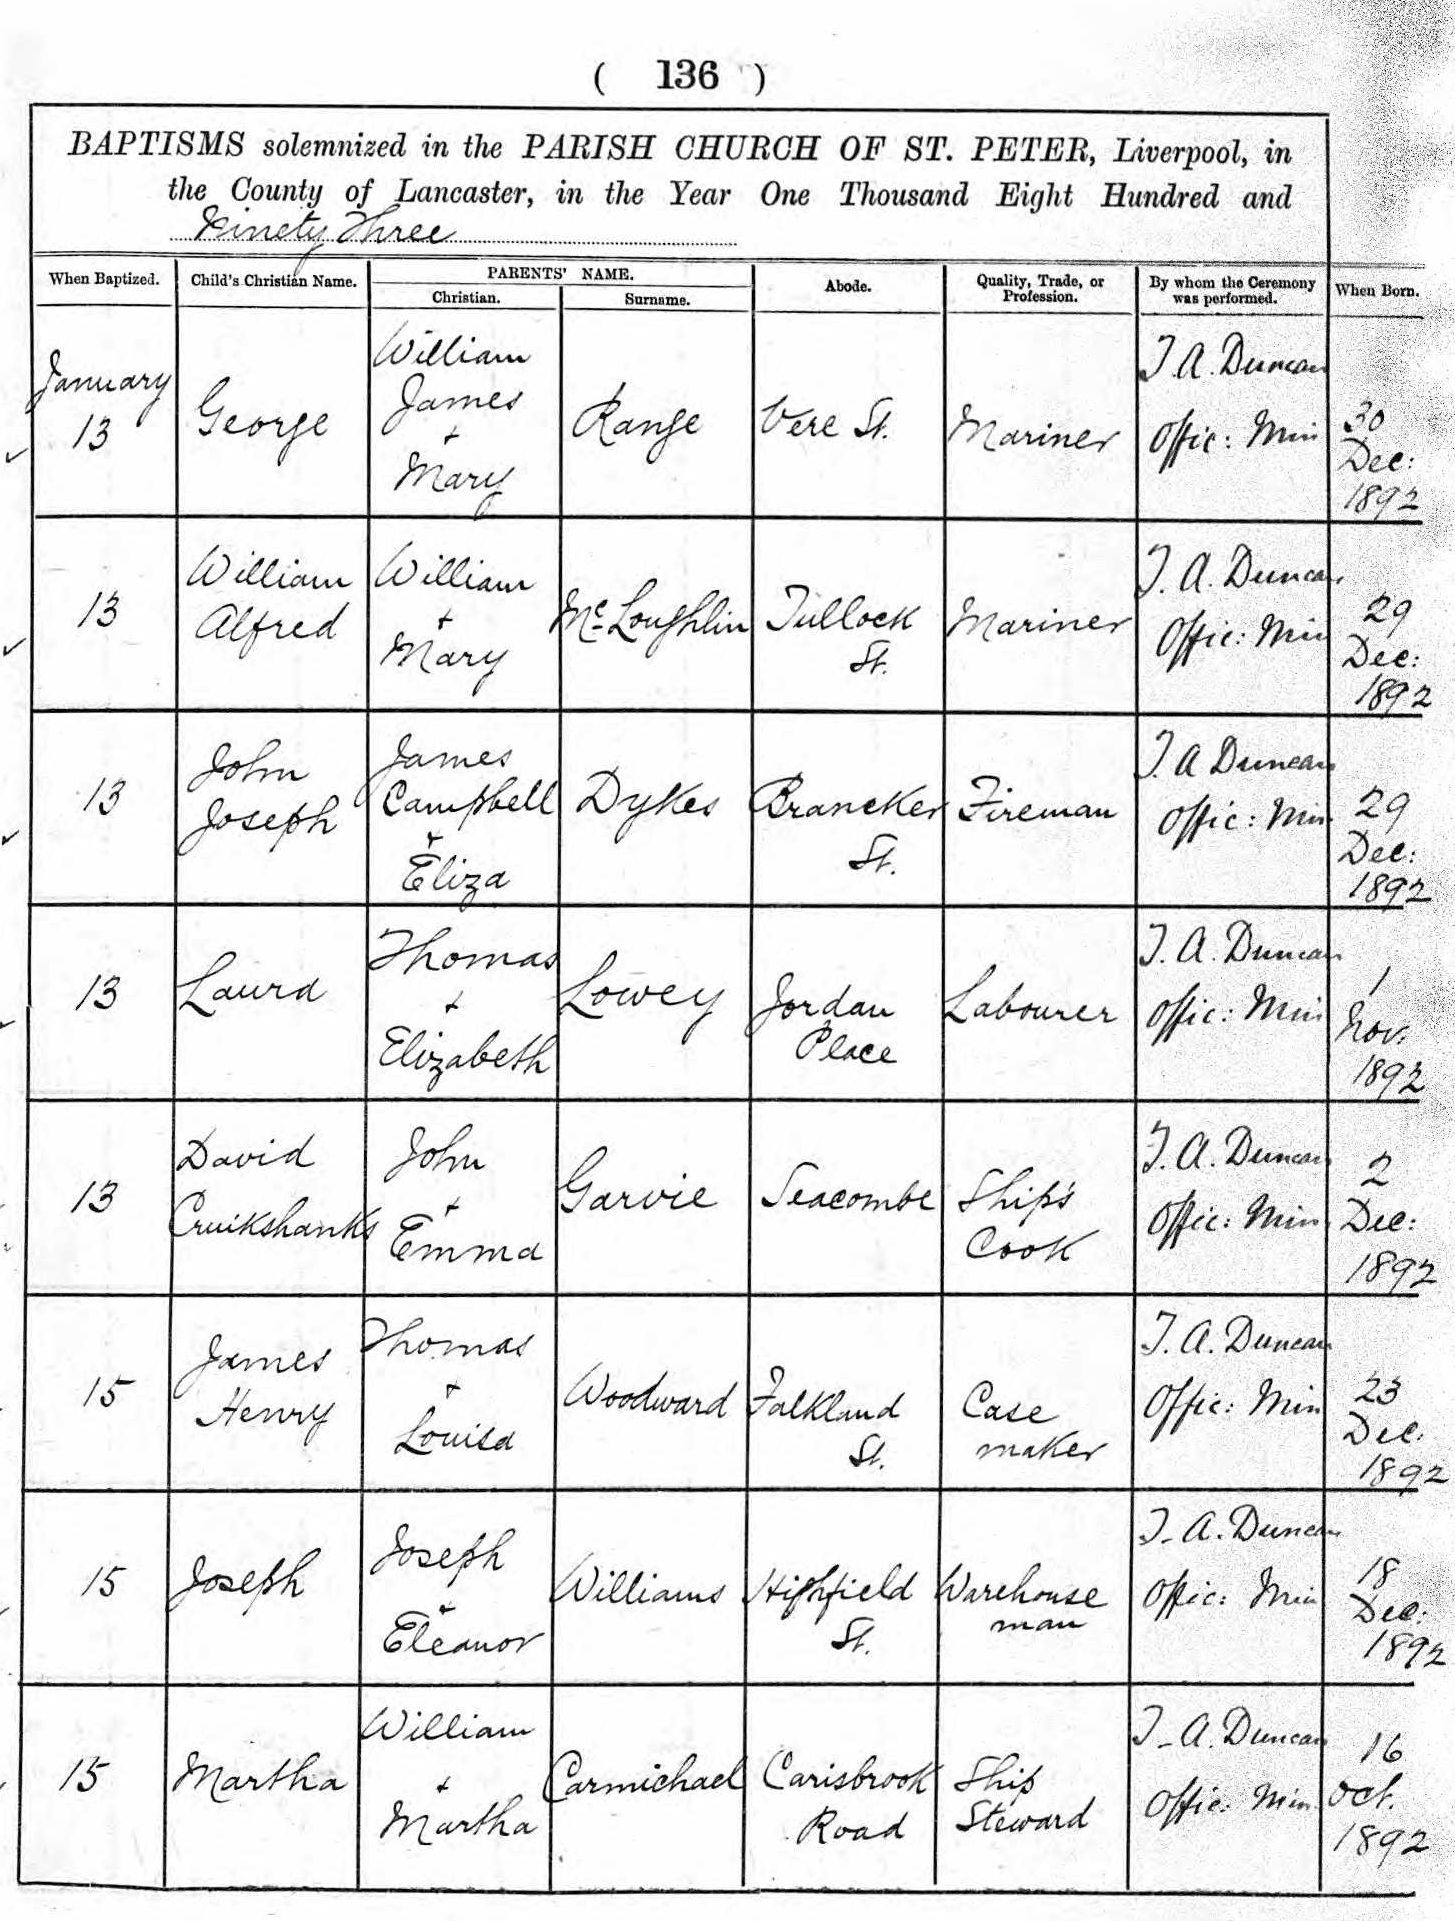 ( 136 )
BAPTISMS solemnized in the PARISH CHURCH OF ST. PETER, Liverpool, in
the County of Lancaster, in the Year One Thousand Eight Hundred and
Ninety Three
When Baptized. Child's Christian Name. PARENTS' NAME. Abode. Quality, Trade, or Profession. By whom the Ceremony was performed. When Born.
Christian. Surname.
January 13 George William James + Mary Range Vere St. Mariner T. A. Duncan Offic: Min 30 Dec: 1892
13 William Alfred William + Mary Mc Loughlin Tullock St. Mariner T. A. Duncan Offic: Min 29 Dec: 1892
13 John Joseph James Campbell + Eliza Dykes Brancker St. Fireman T. A Duncan Offic: Min 29 Dec: 1892
13 Laura Thomas + Elizabeth Lowey Jordan Place Labourer T. A. Duncan Offic: Min 1 Nov. 1892
13 David Cruikshanks John + Emma Garvie Seacombe Ship's Cook T. A. Duncan Offic: Min 2 Dec: 1892
15 James Henry Thomas + Louisa Woodward Falkland St. Case maker T. A. Duncan Offic: Min 23 Dec. 1892
15 Joseph Joseph + Eleanor Williams Highfield St. Warehouse man T. A. Duncan Offic: Min 18 Dec: 1892
15 Martha William + Martha Carmichael Carisbrook Road Ship Steward T. A. Duncan Offic: Min 16 Oct. 1892